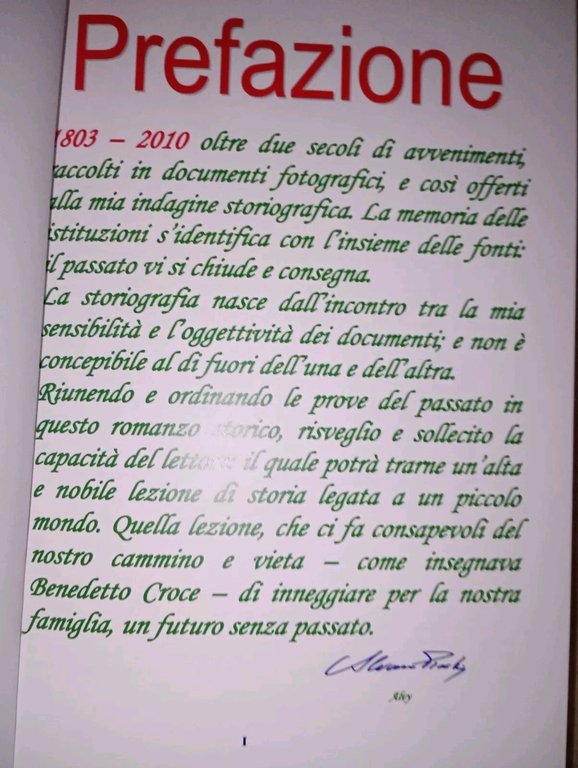 Prefazione
1803 – 2010 oltre due secoli di avvenimenti,
raccolti in documenti fotografici, e così offerti
alla mia indagine storiografica. La memoria delle
istituzioni s'identifica con l'insieme delle fonti:
il passato vi si chiude e consegna.
La storiografia nasce dall'incontro tra la mia
sensibilità e l'oggettività dei documenti; e non è
concepibile al di fuori dell'una e dell'altra.
Riunendo e ordinando le prove del passato in
questo romanzo storico, risveglio e sollecito la
capacità del lettore il quale potrà trarne un'alta
e nobile lezione di storia legata a un piccolo
mondo. Quella lezione, che ci fa consapevoli del
nostro cammino e vieta – come insegnava
Benedetto Croce – di inneggiare per la nostra
famiglia, un futuro senza passato.
Alvy
I